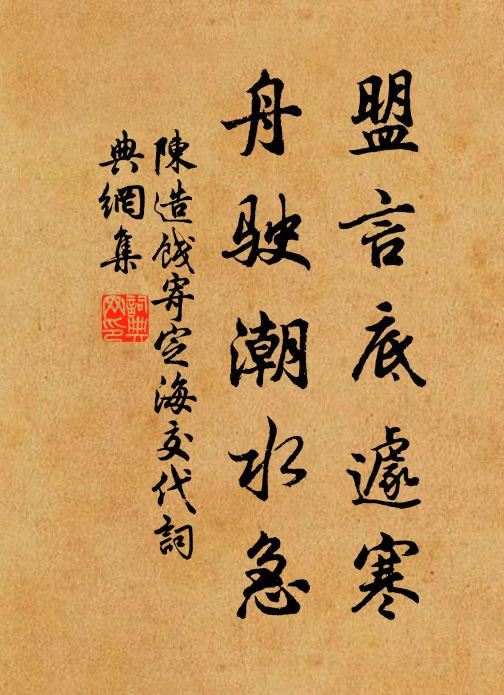 盟言底遽寒
舟駛潮水急
陳造餞寄定海交代詞
典網集
詞典網印